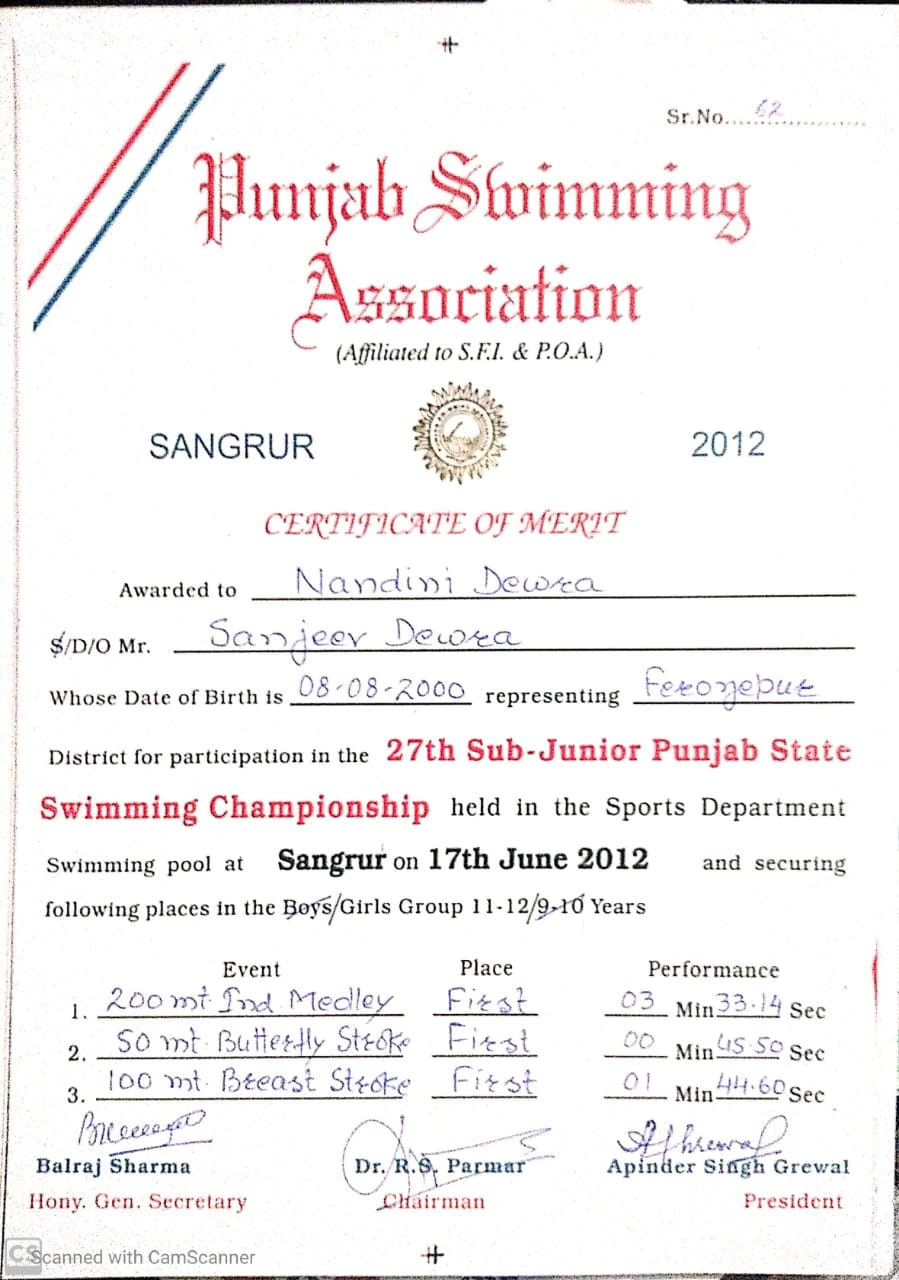 Sr.No. 62
Punjab Swimming
Association
(Affiliated to S.F.I. & P.O.A.)
SANGRUR 2012
CERTIFICATE OF MERIT
Awarded to Nandini Dewra
S/D/O Mr. Sanjeev Dewra
Whose Date of Birth is 08-08-2000 representing Ferozepur
District for participation in the 27th Sub-Junior Punjab State
Swimming Championship held in the Sports Department
Swimming pool at Sangrur on 17th June 2012 and securing
following places in the Boys/Girls Group 11-12/9-10 Years
Event Place Performance
1. 200 mt Ind. Medley First 03 Min 33.14 Sec
2. 50 mt. Butterfly Stroke First 00 Min 45.50 Sec
3. 100 mt. Breast Stroke First 01 Min 44.60 Sec
Balraj Sharma Dr. R.S. Parmar Apinder Singh Grewal
Hony. Gen. Secretary Chairman President
CS Scanned with CamScanner